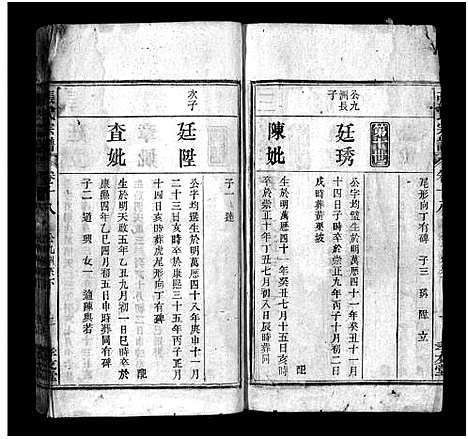 尾形向丁有碑 子三 昇 陞 立
公九
洲長
子
廷琇
公字均璧生於明萬曆四十一年癸丑十一月
十四日子時卒於崇正九年丙子十月初二日
戌時葬黃栗坡
陳妣
生於明萬曆四十一年癸丑七月十五日亥
時卒於崇正十年丁丑七月初八日辰時葬同
陞
子一 達
次子
廷陞
公字均選生於明萬曆四十八年庚申十一月
二十三日亥時卒於康熙三十五年丙子六月
十四日亥時葬虎尾形向丁有碑
查妣
生於明天啟五年乙丑九月初一日巳時卒於
康熙四年乙巳四月初六日申時葬同有碑
子二 道 興 女一 適陳與若
張氏宗譜
卷十八